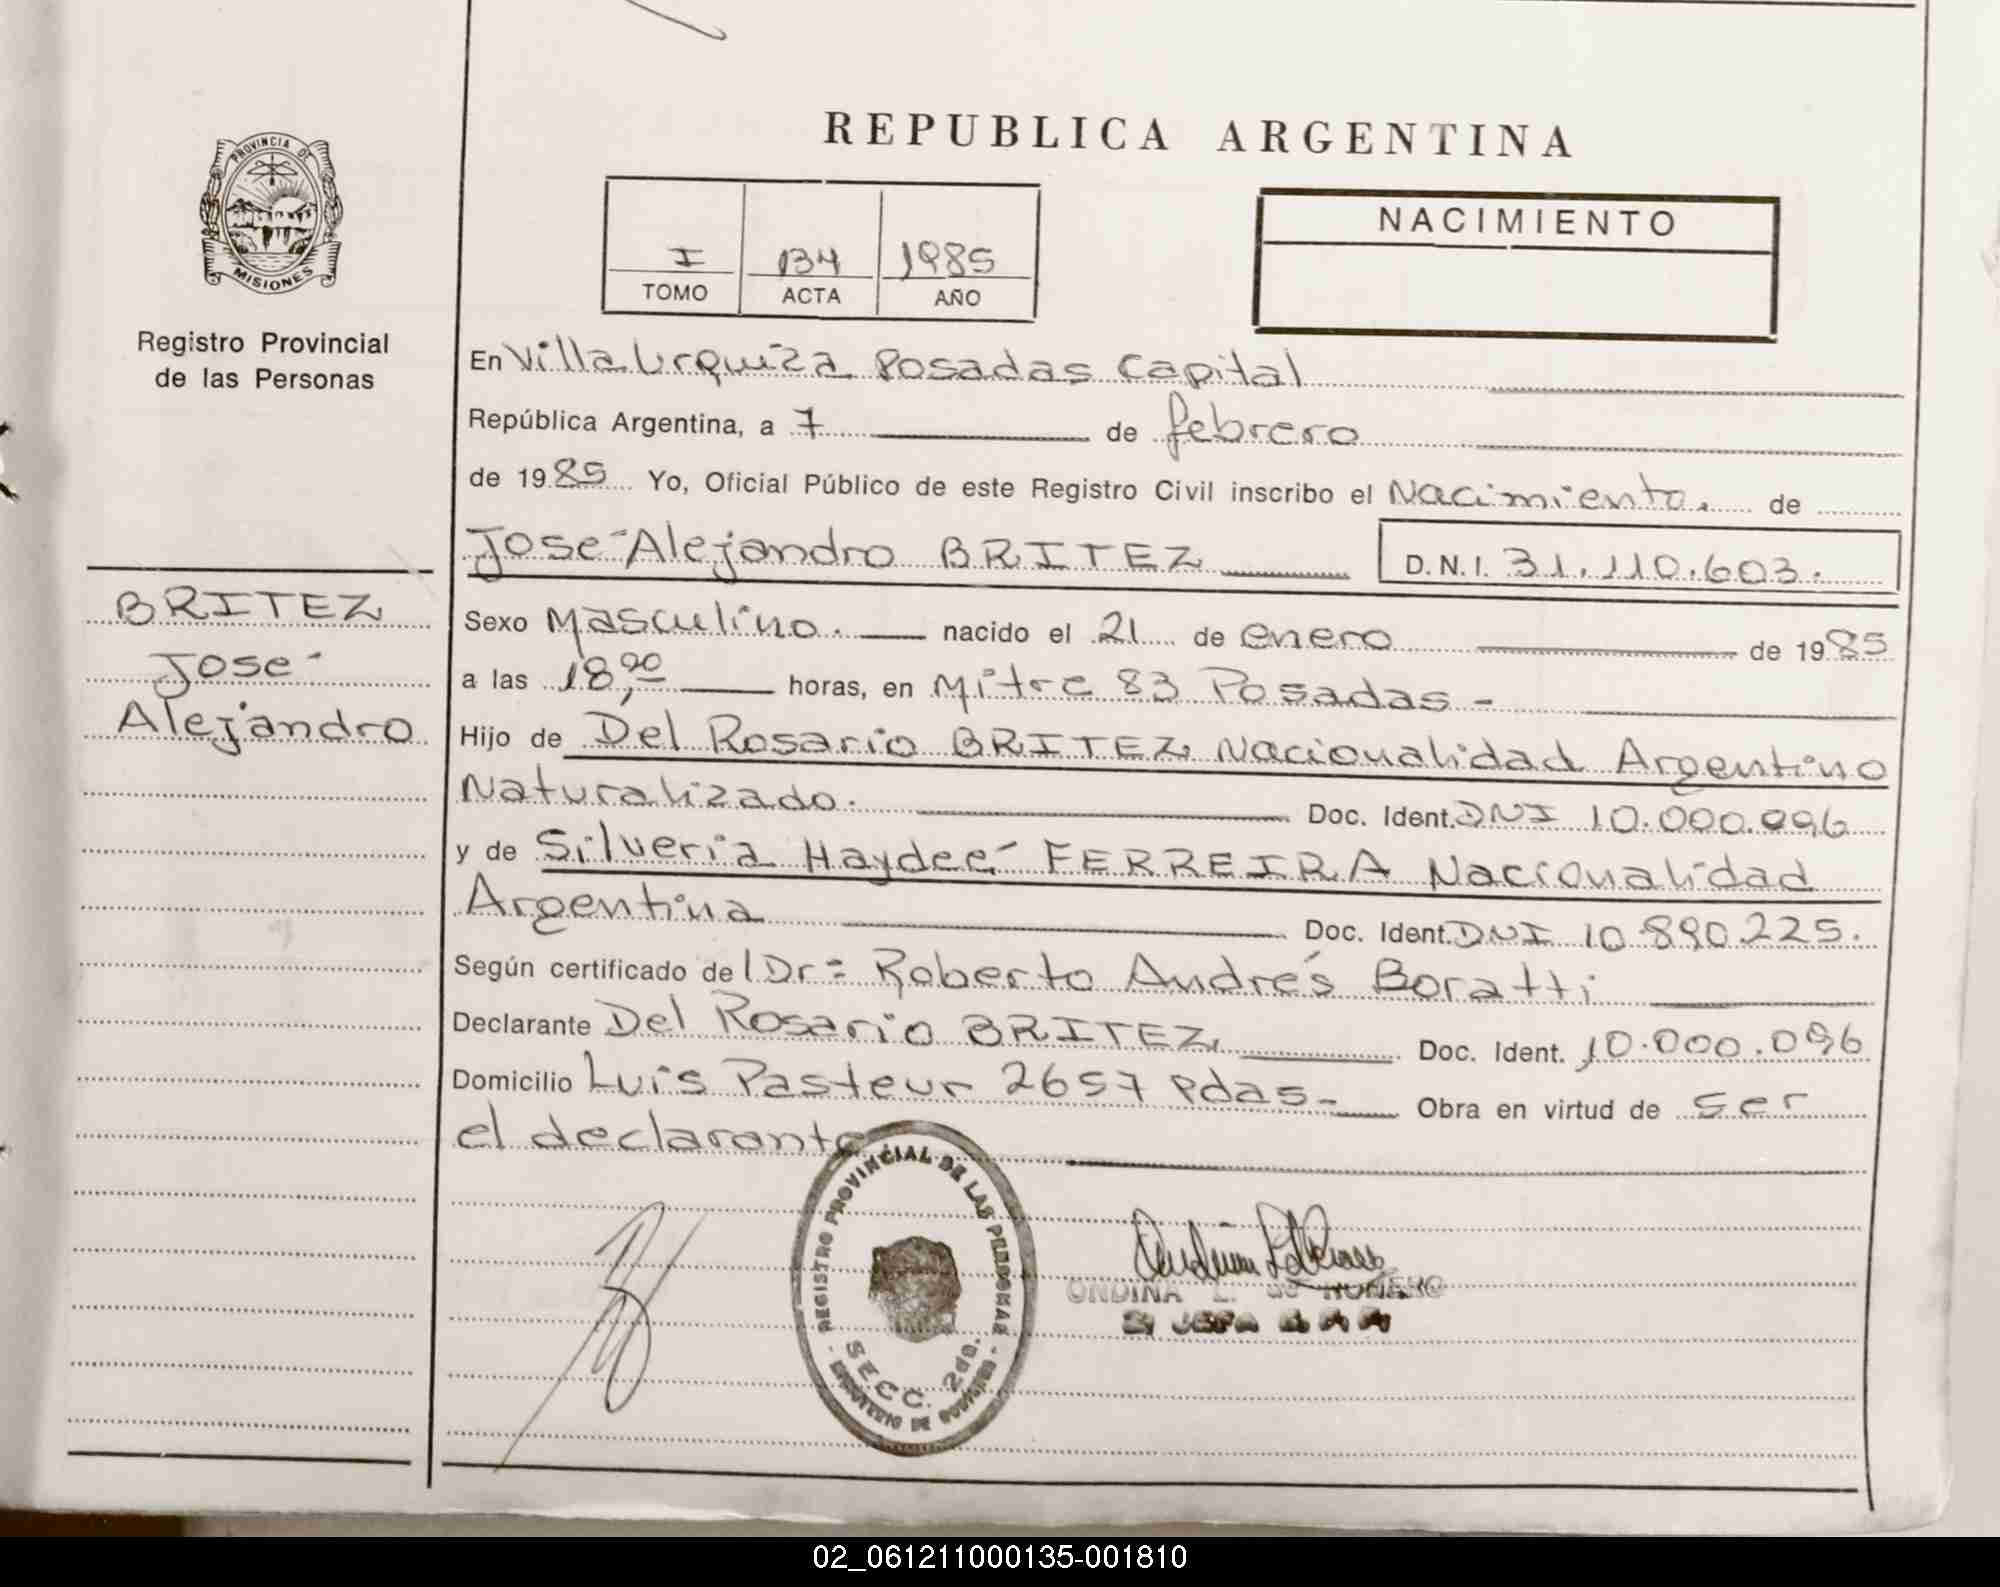 REPUBLICA ARGENTINA
PROVINCIA DE
MISIONES
Registro Provincial
de las Personas
I 134 1985
TOMO ACTA AÑO
NACIMIENTO
BRITEZ
José
Alejandro
En Villa Urquiza Posadas Capital
República Argentina, a 7 de febrero
de 1985 Yo, Oficial Público de este Registro Civil inscribo el Nacimiento. de
José Alejandro BRITEZ D.N.I. 31.110.603.
Sexo Masculino. nacido el 21 de enero de 1985
a las 18,00 horas, en Mitre 83 Posadas -
Hijo de Del Rosario BRITEZ Nacionalidad Argentino
Naturalizado. Doc. Ident. DNI 10.000.096
y de Silveria Haydeé FERREIRA Nacionalidad
Argentina Doc. Ident. DNI 10.890.225.
Según certificado del Dr: Roberto Andrés Boratti
Declarante Del Rosario BRITEZ, Doc. Ident. 10.000.096
Domicilio Luis Pasteur 2657 Pdas- Obra en virtud de ser
el declarante
REGISTRO PROVINCIAL DE LAS PERSONAS
SECC. 2da.
ONDINA ROMERO
JEFA
02_061211000135-001810